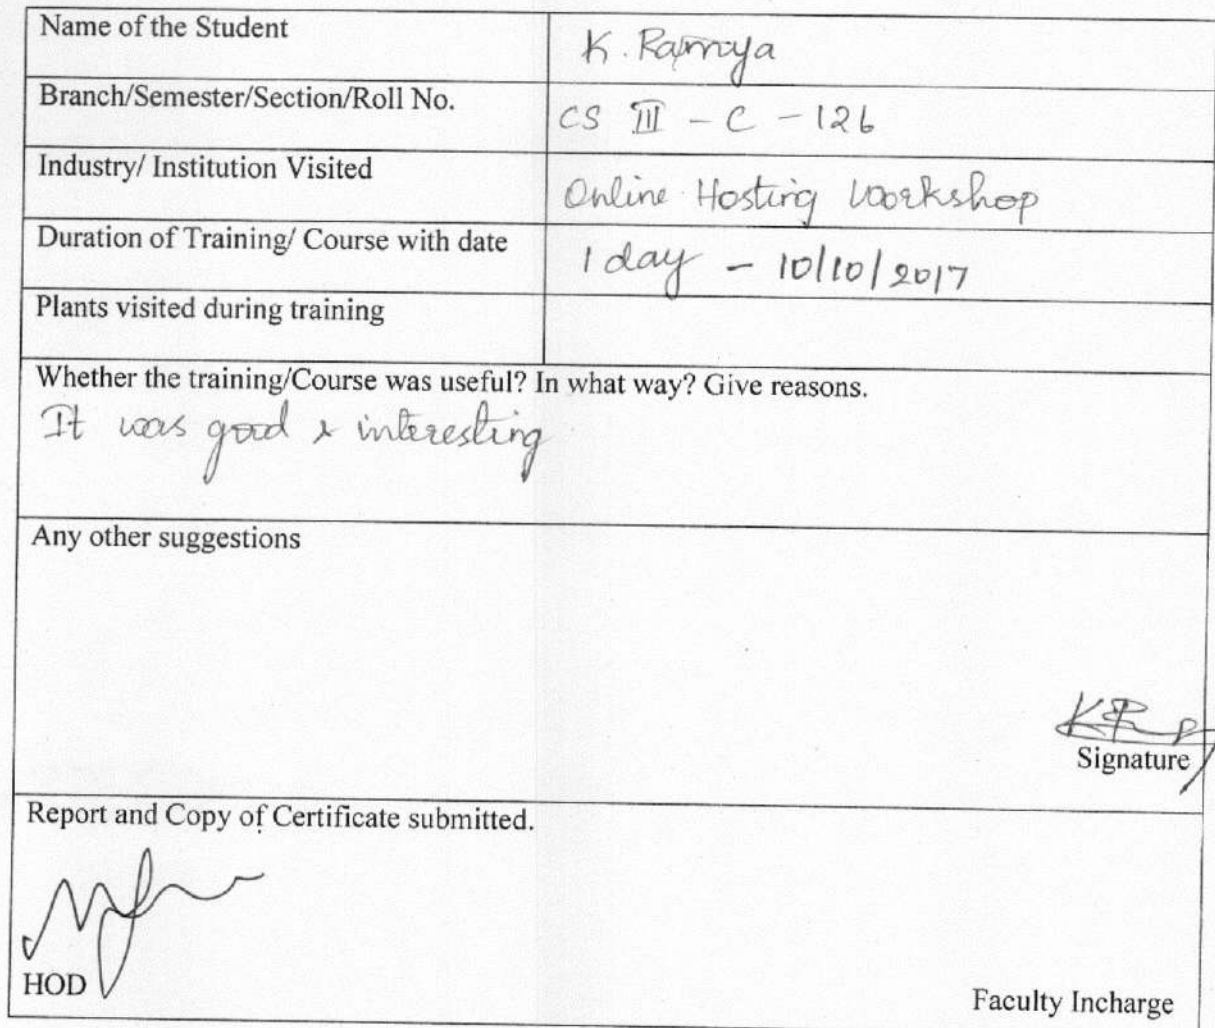 Name of the Student K. Ramya
Branch/Semester/Section/Roll No. CS III - C - 126
Industry/ Institution Visited Online Hosting Workshop
Duration of Training/ Course with date 1 day - 10/10/2017
Plants visited during training
Whether the training/Course was useful? In what way? Give reasons.
It was good & interesting
Any other suggestions
Signature
Report and Copy of Certificate submitted.
HOD
Faculty Incharge